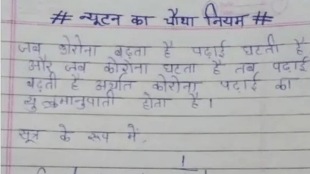 # न्यूटन का चौथा नियम #
जब कोरोना बढ़ता है पढाई घटती है
और जब कोरोना घटता है तब पढाई
बढ़ती है अर्थात कोरोना पढाई का
व्युत्क्रमानुपाती होता है।
सूत्र के रूप में,
1